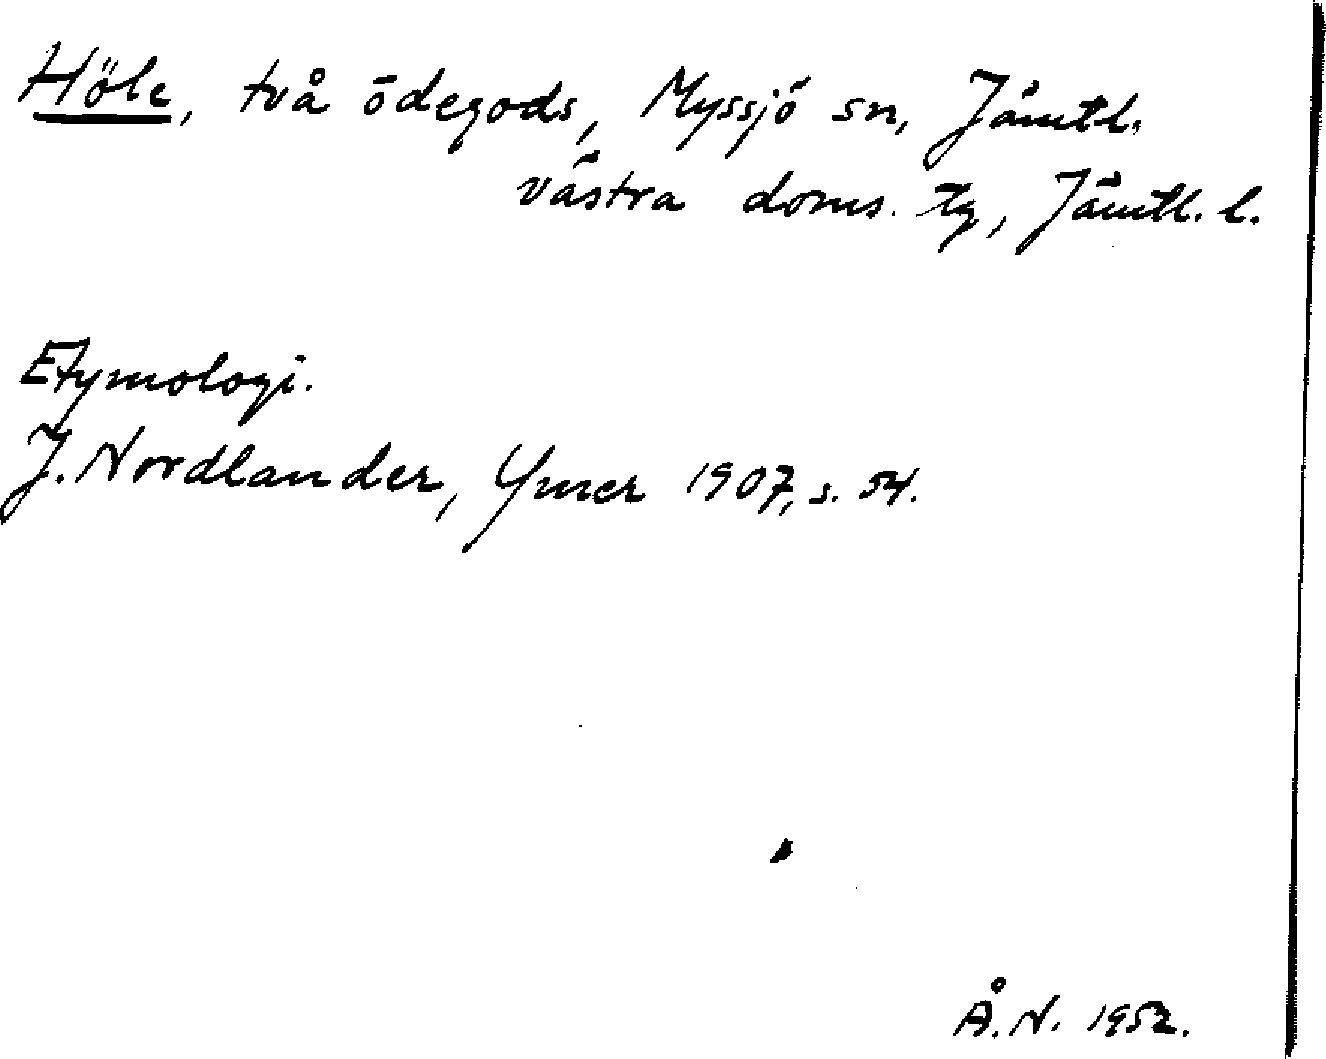 Höle, två ödegods, Myssjö sn, Jämtl.
västra doms. tg, Jämtl. l.
Etymologi.
J. Nordlander, Ymer 1907, s. 54.
Å. N. 1952.